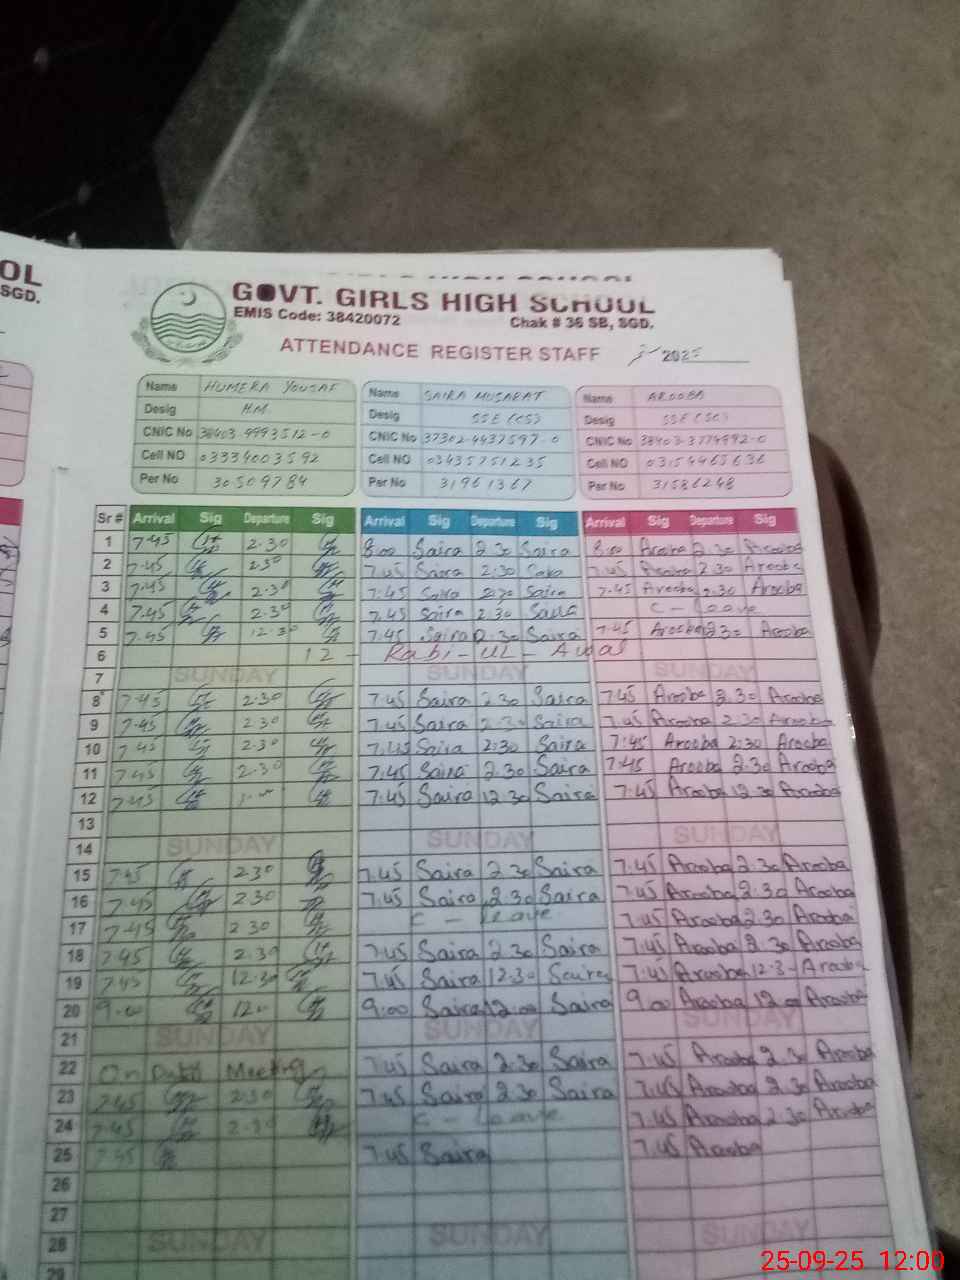 OL
SGD.
GOVT. GIRLS HIGH SCHOOL
EMIS Code: 38420072 Chak # 36 SB, SGD.
ATTENDANCE REGISTER STAFF 202
Name HUMERA YOUSAF Name SAIRA MUSARAT Name AROOBA
Desig H.M. Desig SSE (CS) Desig SSE (SC)
CNIC No 38403-9993512-0 CNIC No 37302-4437597-0 CNIC No 38403-3774992-0
Cell NO 03334003592 Cell NO 03435751235 Cell NO 03154465636
Per No 30509784 Per No 31961367 Per No 31586248
Sr # Arrival Sig Departure Sig Arrival Sig Departure Sig Arrival Sig Departure Sig
1 7.45 2.30 8:00 Saira 2.30 Saira 8:00 Arooba 2.30 Arooba
2 7.45 2.30 7.45 Saira 2:30 Saira 7.45 Arooba 2.30 Arooba
3 7.45 2.30 7:45 Saira 2:30 Saira 7.45 Arooba 2.30 Arooba
4 7.45 2.30 7.45 Saira 2.30 Saira C - Leave
5 7.45 12.30 7:45 Saira 12.30 Saira 7.45 Arooba 12.30 Arooba
6 12 - Rabi - UL - Awal
7 SUNDAY SUNDAY SUNDAY
8 7.45 2.30 7.45 Saira 2.30 Saira 7.45 Arooba 2.30 Arooba
9 7.45 2.30 7.45 Saira 2.30 Saira 7.45 Arooba 2.30 Arooba
10 7.45 2.30 7.45 Saira 2:30 Saira 7:45 Arooba 2:30 Arooba
11 7.45 2.30 7.45 Saira 2.30 Saira 7:45 Arooba 2.30 Arooba
12 7.45 7.45 Saira 12.30 Saira 7:45 Arooba 12.30 Arooba
13
14 SUNDAY SUNDAY SUNDAY
15 7.45 2.30 7.45 Saira 2.30 Saira 7.45 Arooba 2.30 Arooba
16 7.45 2.30 7.45 Saira 2.30 Saira 7.45 Arooba 2.30 Arooba
17 7.45 2.30 C - Leave 7.45 Arooba 2.30 Arooba
18 7.45 2.30 7.45 Saira 2.30 Saira 7:45 Arooba 2.30 Arooba
19 7.45 12.30 7.45 Saira 12.30 Saira 7:45 Arooba 12.3 Arooba
20 9.00 12.0 9:00 Saira 12:00 Saira 9.00 Arooba 12.00 Arooba
21 SUNDAY SUNDAY SUNDAY
22 On Meeting 7.45 Saira 2.30 Saira 7.45 Arooba 2.30 Arooba
23 7.45 2.30 7.45 Saira 2.30 Saira 7.45 Arooba 2.30 Arooba
24 7.45 2.30 C - Leave 7.45 Arooba 2.30 Arooba
25 7.45 7.45 Saira 7.45 Arooba
26
27
28 SUNDAY SUNDAY SUNDAY
29
25-09-25 12:00